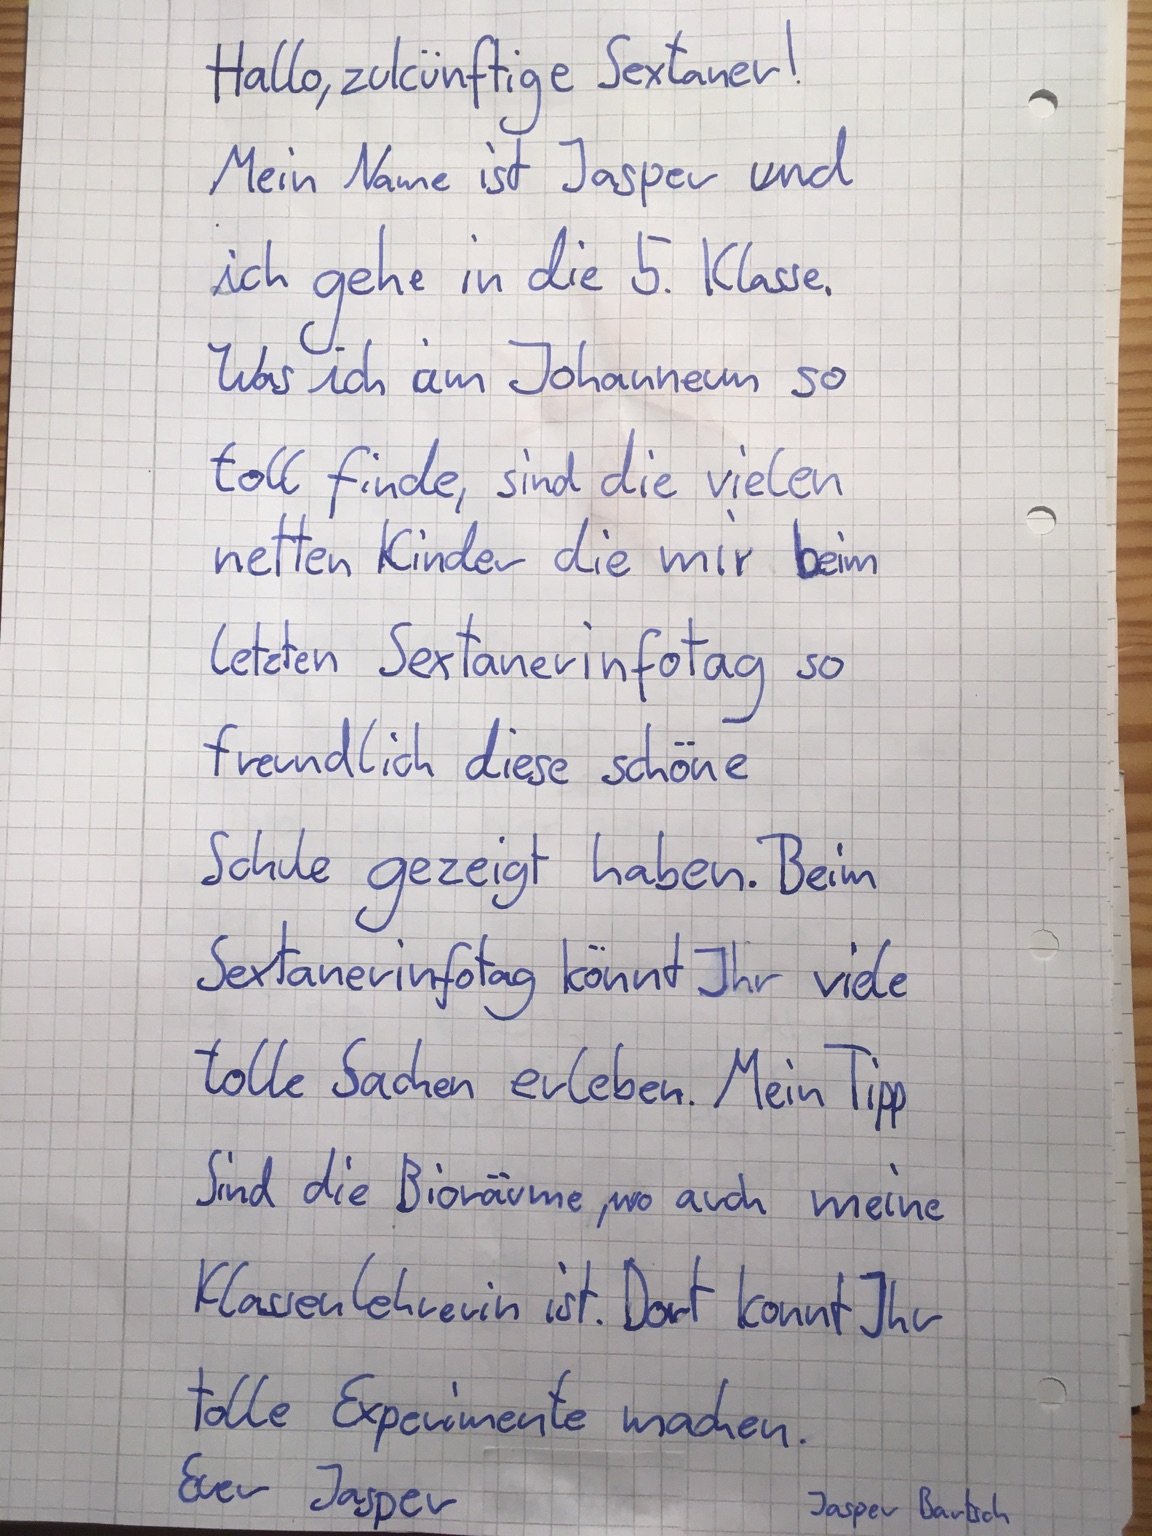 Hallo, zukünftige Sextaner!
Mein Name ist Jasper und
ich gehe in die 5. Klasse.
Was ich am Johanneum so
toll finde, sind die vielen
netten Kinder die mir beim
letzten Sextanerinfotag so
freundlich diese schöne
Schule gezeigt haben. Beim
Sextanerinfotag könnt Ihr viele
tolle Sachen erleben. Mein Tipp
sind die Bioräume, wo auch meine
Klassenlehrerin ist. Dort konnt Ihr
tolle Experimente machen.
Euer Jasper
Jasper Bartsch